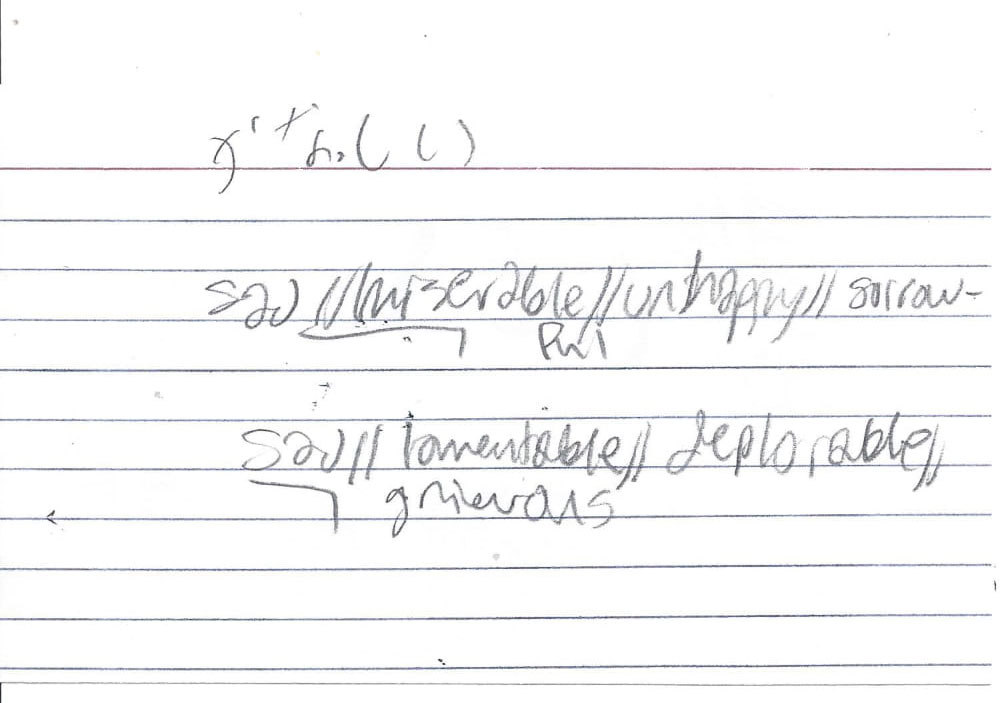 sad // miserable // unhappy // sorrow-
ful
sad // lamentable // deplorable //
grievous